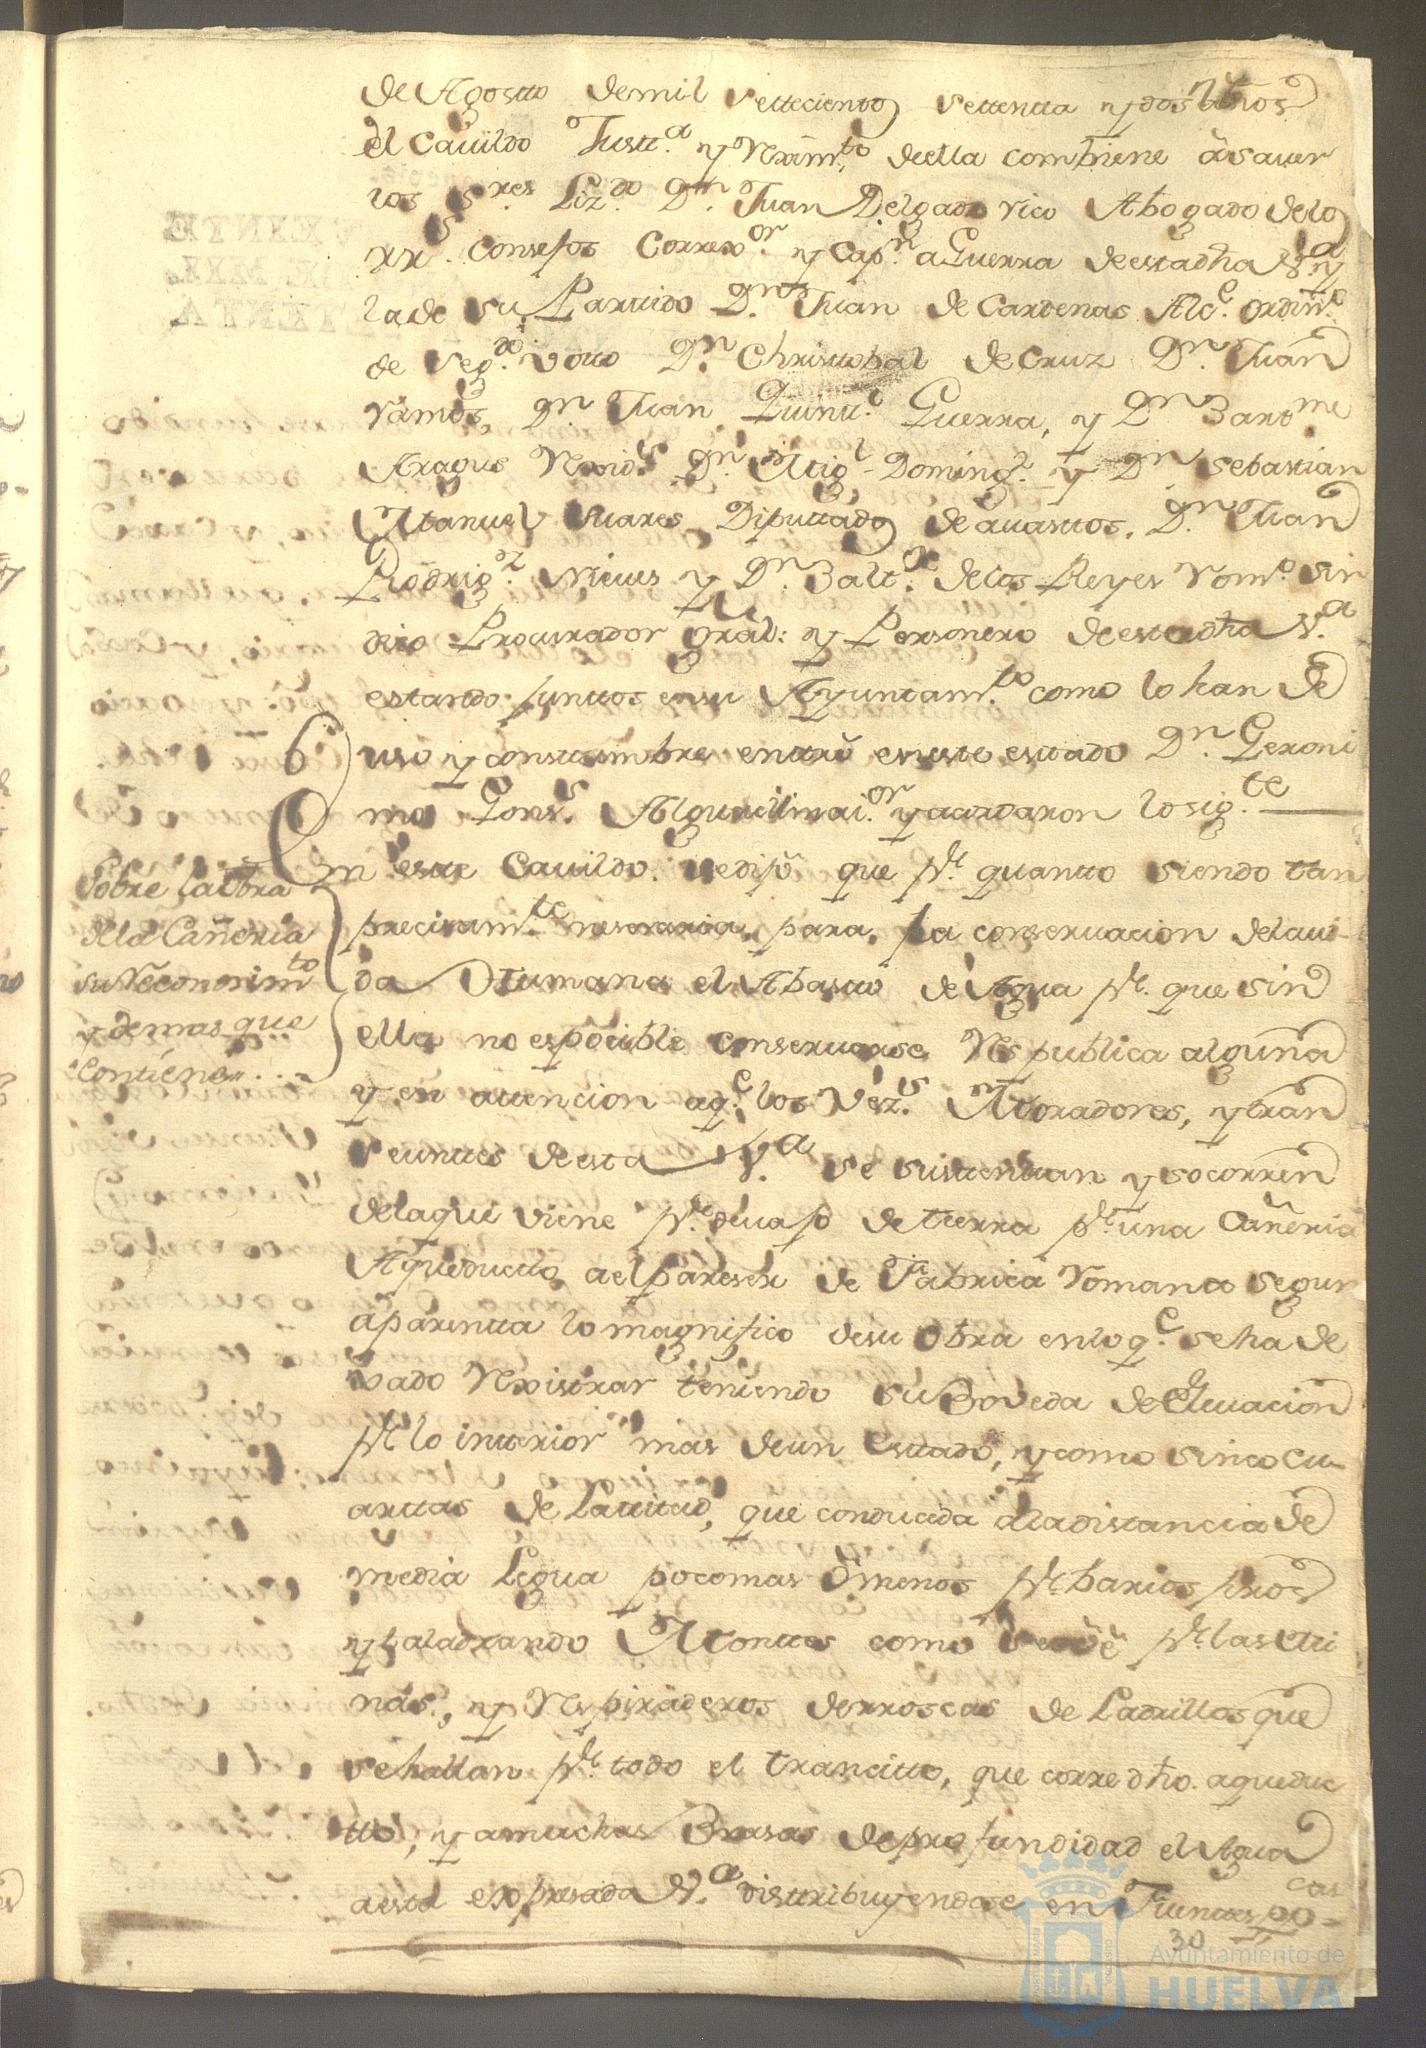 de Agostto demil Settecientos settentta y dos años
el Cavildo Justt.ª y Rexim.to deella combiene âsaver
los S.res Liz.do D.n Juan Delgado rico Abogado delos
rr.s Consejos Correx.or y Cap.n aGuerra deestadha V.ª y
lade su Parttido D.n Juan de Cardenas Alc.e ordin.o
de seg.do votto D.n Christtobal deCruz D.n Juan
ramos, D.n Juan Quintt.o Guerra, y D.n Bartt.me
Aragus Rexid.s D.n Mig.l Doming.z y D.n Sebasttian
Manuel Suares Diputtados deavasttos. D.n Juan
Rodrig.z Vides y D.n Balt.ar delos Reyes rom.o Sin
dico Procurador gral: y Personero deestadha V.ª
estando Junttos ensu Ayuntam.to como lo han de
uso y consttumbre enttró enestte esttado D.n Geroni
mo Gons.s Alguacilmai.or y acordaron losig.te
En estte Cavildo sedijo que p.r quantto siendo tan
precisam.te nesesaria para la conservacion delavi-
da Humana el Abastto de Agua p.r que sin
ella no esposible conservarse Rs publica alguna
y en attencion aq.e los Vez.s Moradores, ytran
seunttes deesta V.ª se susttenttan y socorren
delaque viene p.r devajo de tierra p.r una Cañeria
Aqueductto ael pareser de Fabrica romana segun
aparentta lo magnifico desu Obra enloq.e seha de
vado Rexistrar teniendo su Boveda de Elevacion
p.r lo intterior mas deun esttado, y como sinco cu-
arttas de Lattitud, que conducida aladistancia de
media Legua pocomas ômenos p.r barios
y taladrando Monttes como seve p.r las Mi
nas, y Respiraderos derroscas de Ladrillos que
sehallan p.r todo el trancitto, que corre dho. aqueduc
tto, y amuchas Brasas deprofundidad el Agua
aesta expresada V.ª disttribuyendose en Fuenttes po-
cas
30
6
Sobre laObra
dela Cañeria
su Reconosim.to
y demas que
Contiene
Ayuntamiento de
HUELVA